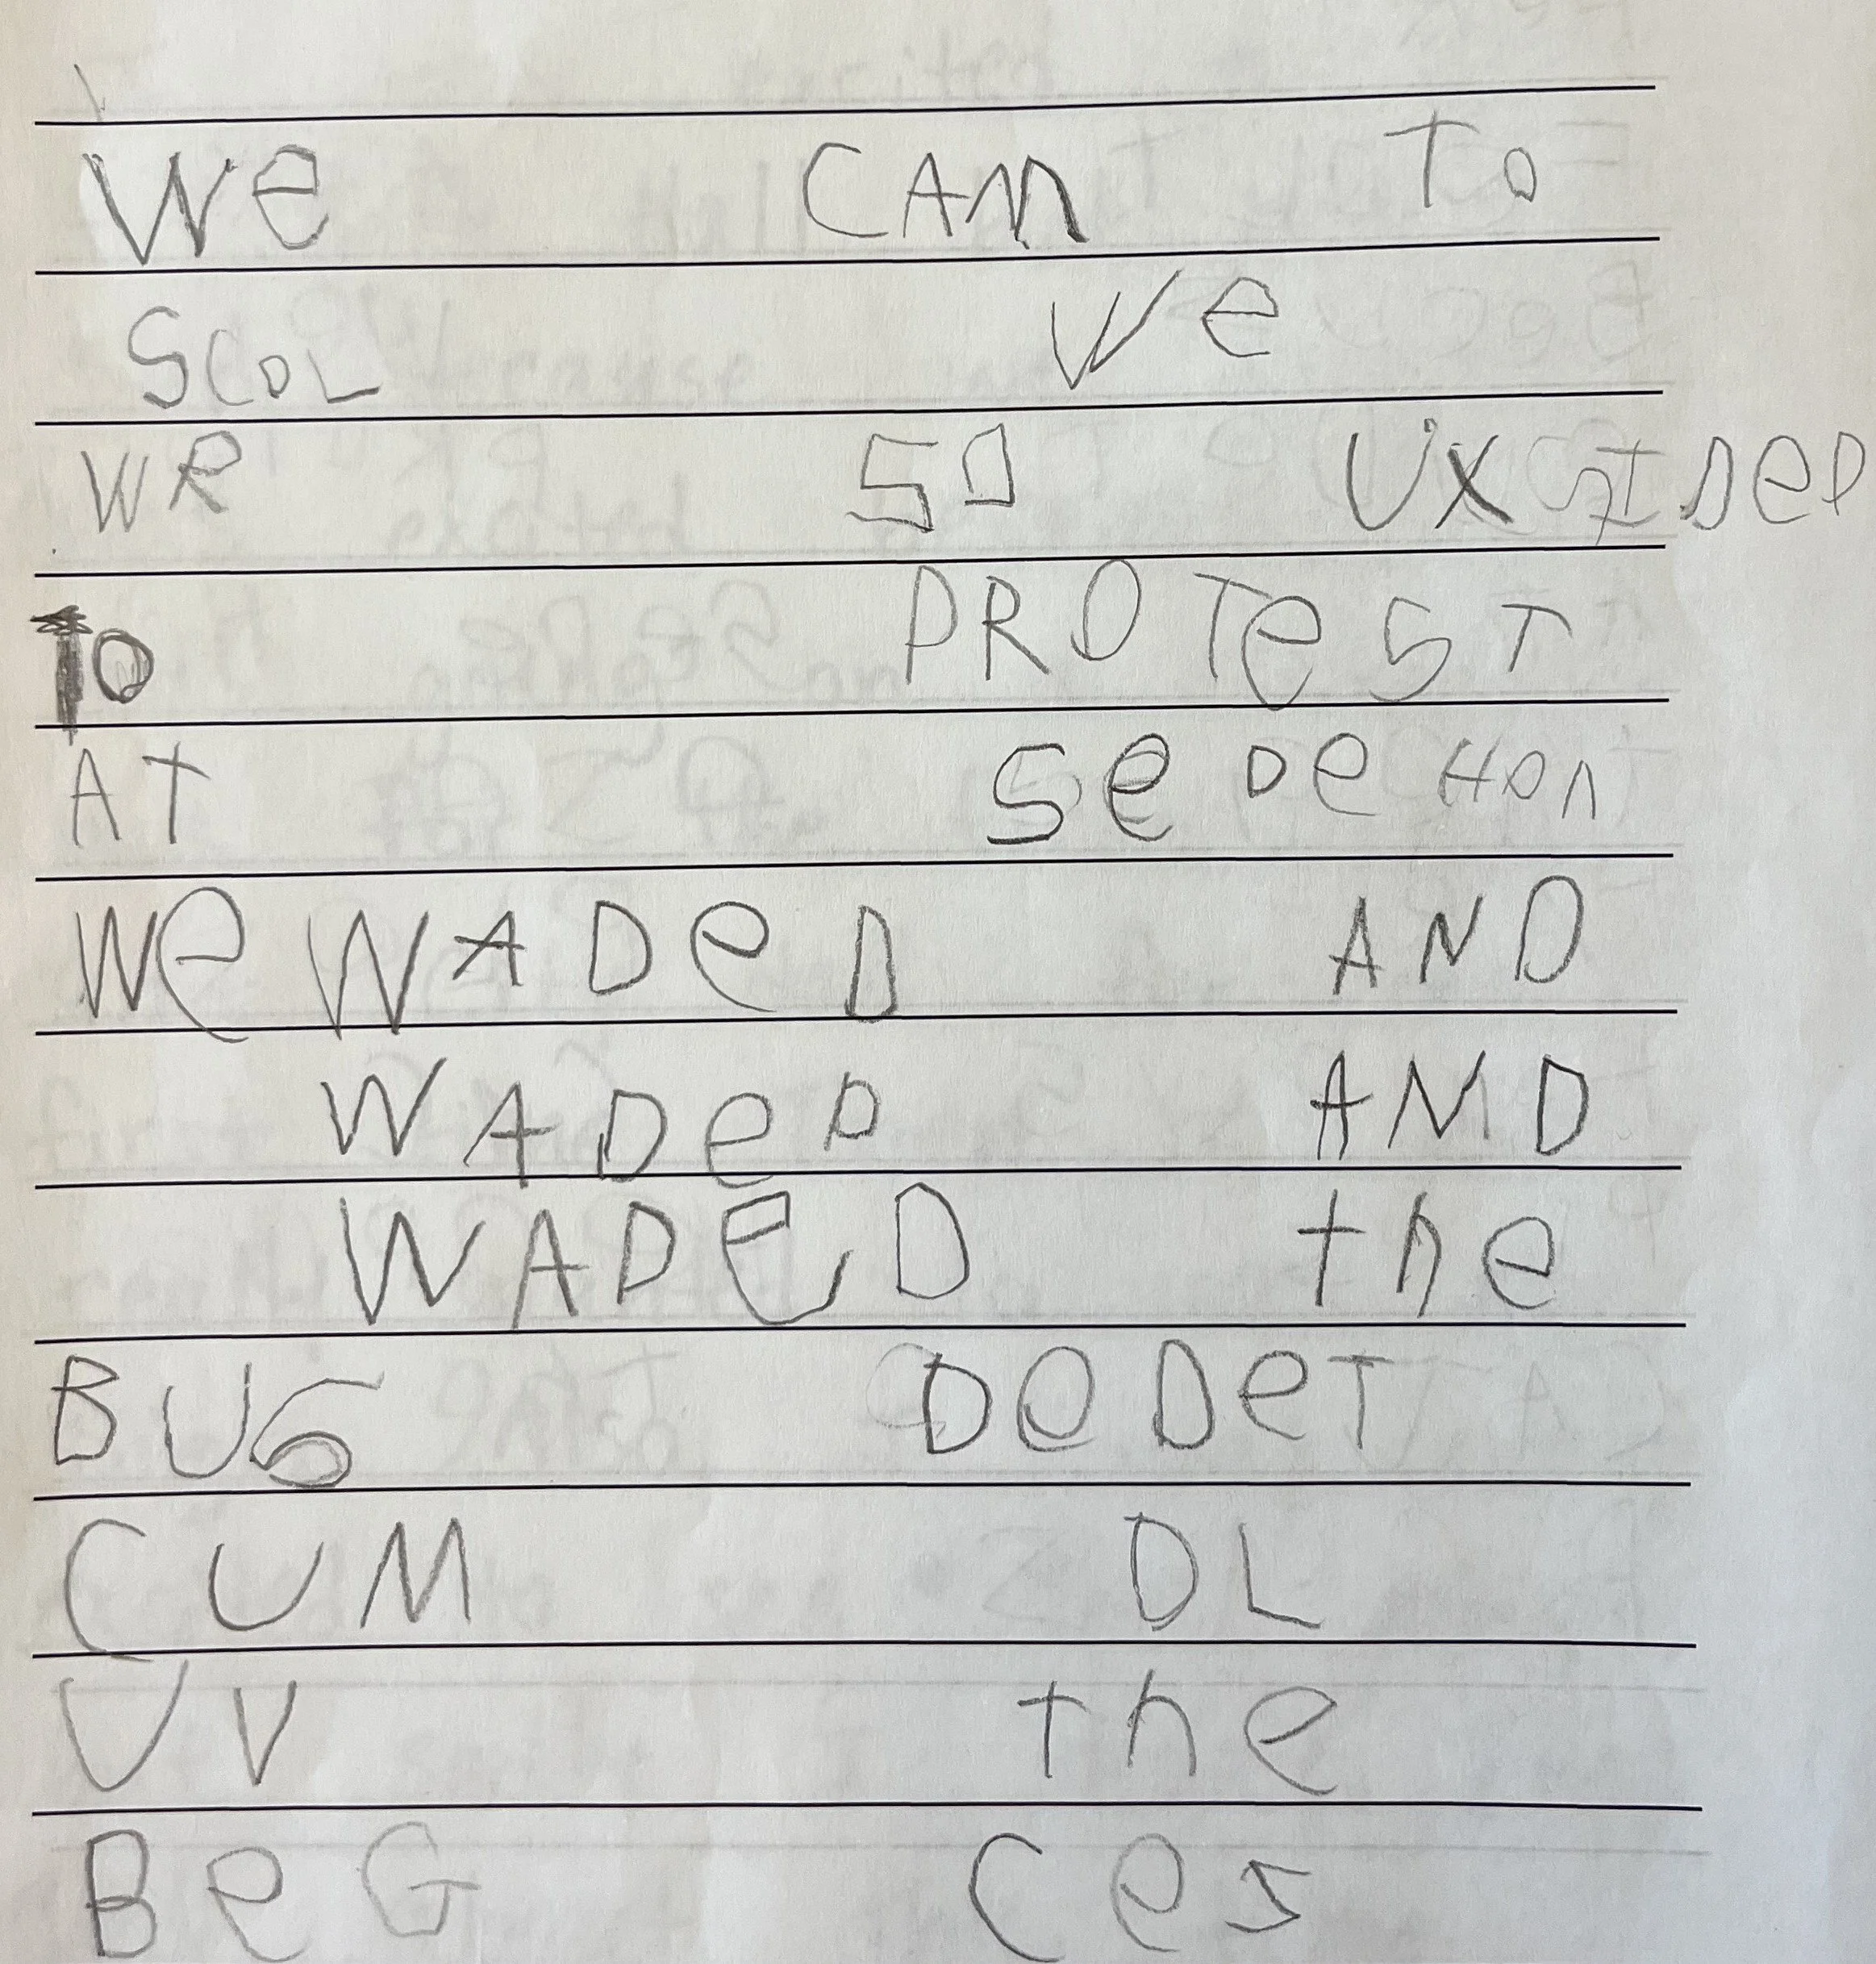 We CAm To
SCOL We
WR SO UXSIDED
To PROTeST
AT SeDeHOn
We WADeD AND
WADeD AND
WADeD the
BUS DeDeT
CUM OL
UV the
BeG Ces